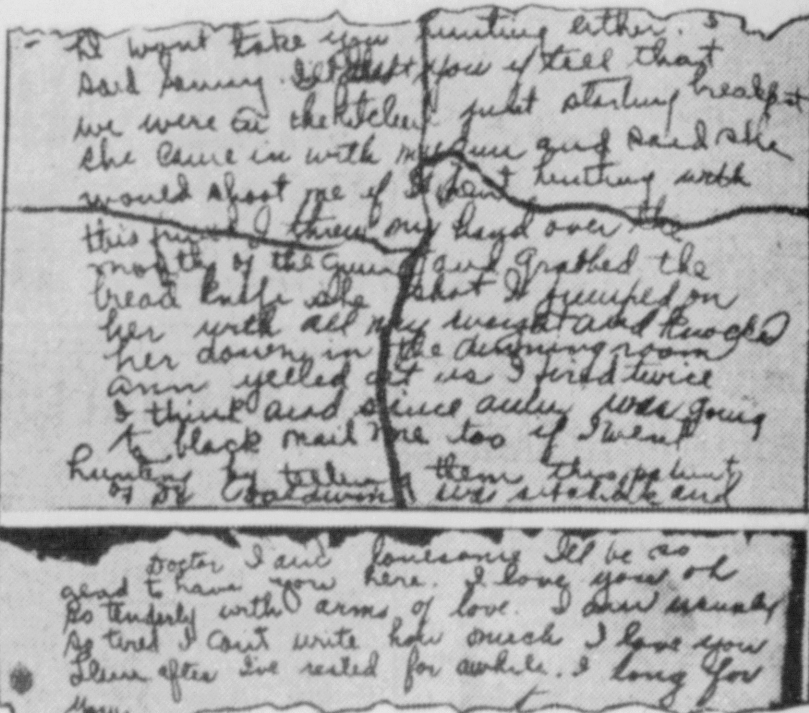 wont take you hunting either. s
said Sammy. you if tell that
we were in the kitchen just starting breakfast
she came in with my gun and said she
would shoot me if I went hunting with
this I threw my hand over the
mouth of the gun and grabbed the
bread knife she shot I jumped on
her with all my weight and knocked
her down in the dinning room
ann yelled at us I fired twice
I think and since ann was going
to black mail me too if I went
hunting by telling them this patient
of Dr Baldwin's was and
Doctor I am lonesome Ill be so
glad to have you here. I love you oh
so tenderly with arms of love. I am usually
so tired I can't write how much I love you
after I've rested for awhile. I long for